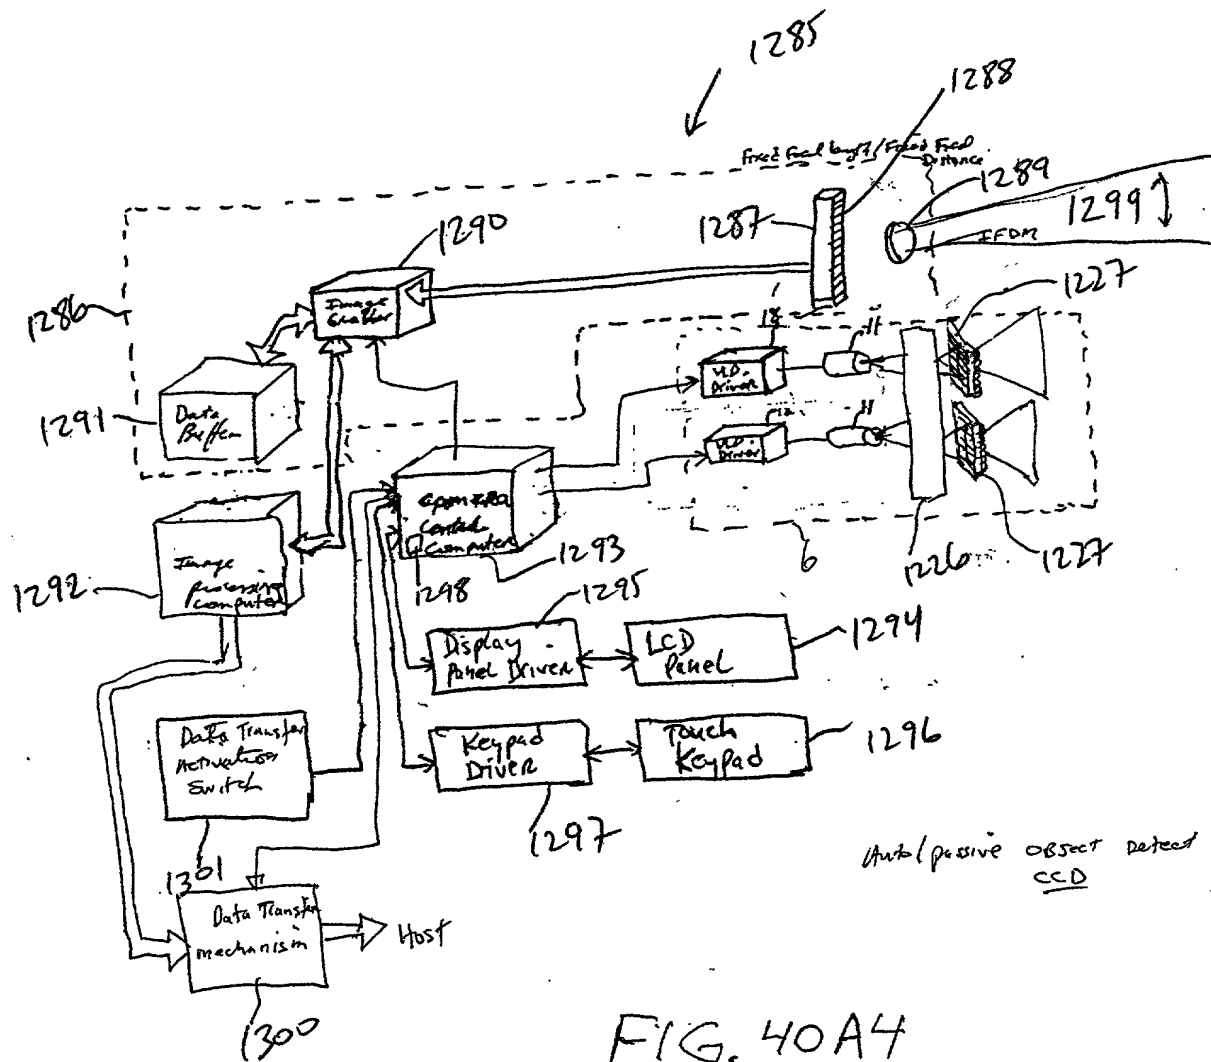 1285
1288
Fixed Focal Length/Fixed Focal
Distance
1289
1299
IFDM
1287
1290
Image
Grabber
1286
1227
12
11
VLD
Driver
1291
Data
Buffer
12
11
VLD
Driver
Camera
Control
Computer
1293
1298
6
1226
1227
1292
Image
processing
computer
1295
Display
Panel Driver
LCD
Panel
1294
Data Transfer
Activation
Switch
Keypad
Driver
Touch
Keypad
1296
1297
1301
Auto/passive OBject Detect
CCD
Data Transfer
mechanism
Host
1300
FIG. 40A4